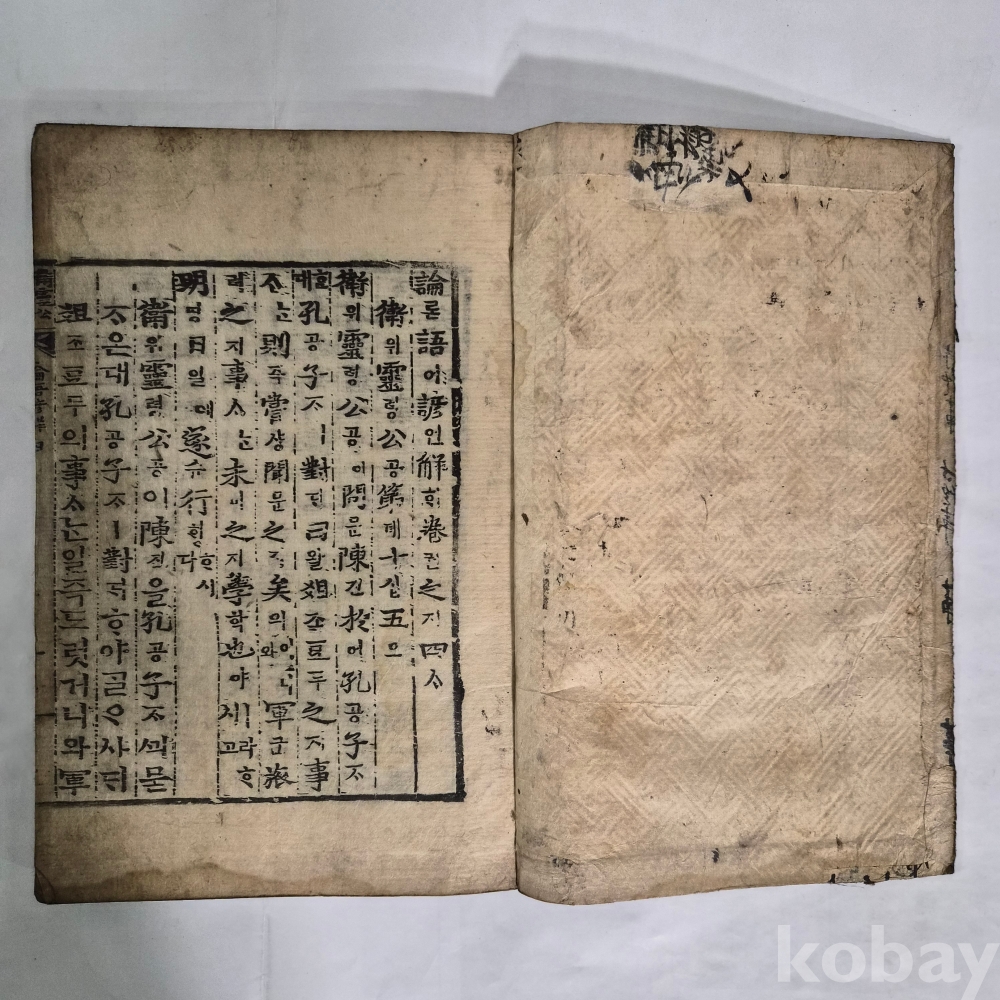 論론語어諺언解ᄒᆡ卷권之지四ᄉᆞ
衛위靈령公공第뎨十십五오
衛위靈령公공이問문陳딘於어孔공子ᄌᆞ
ᄒᆞᆫ대孔공子ᄌᆞㅣ對ᄃᆡ曰왈俎조豆두之지事
ᄉᆞᄂᆞᆫ則즉嘗샹聞문之지矣의어니와軍군旅
려之지事ᄉᆞᄂᆞᆫ未미之지學학也야ㅣ라ᄒᆞ시고
明명日일에遂슈行ᄒᆡᆼᄒᆞ시다
衛위靈령公공이陳딘을孔공子ᄌᆞᄭᅴ묻
ᄌᆞ온대孔공子ᄌᆞㅣ對ᄃᆡᄒᆞ야ᄀᆞᆯᄋᆞ샤ᄃᆡ
俎조豆두의事ᄉᆞᄂᆞᆫ일즉드럿거니와軍
kobay